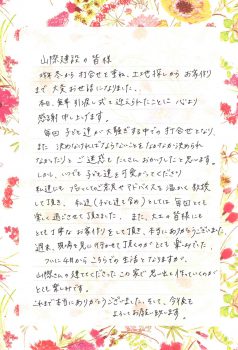 山際建設の皆様
昨年冬から打合せを重ね、土地探しからお家作り
まで大変お世話になりました。
本日、無事引渡し式を迎えられたことに心より
感謝申し上げます。
毎回子ども達が大騒ぎする中での打合せとなり、
また決めなければならないことをなかなか決められ
なかったりとご迷惑をたくさんおかけしたと思います。
しかし、いつも子ども達を可愛がってくださり
私達にもプロとしてのご意見やアドバイスを温かく教授
して頂き、私達(子ども達も含め)としては毎回とても
楽しく過ごさせて頂きました。また、大工の皆様にも
とても丁寧なお家作りをして頂き、本当にありがとうございました。
週末、現場を見に行かせて頂くのがとても楽しみでした。
ついに4月からこちらでの生活となりますが、
山際さんの建ててくださったこの家で思い出を作っていくのが
とても楽しみです。
これまで本当にありがとうございました。そして、今後とも
よろしくお願い致します。